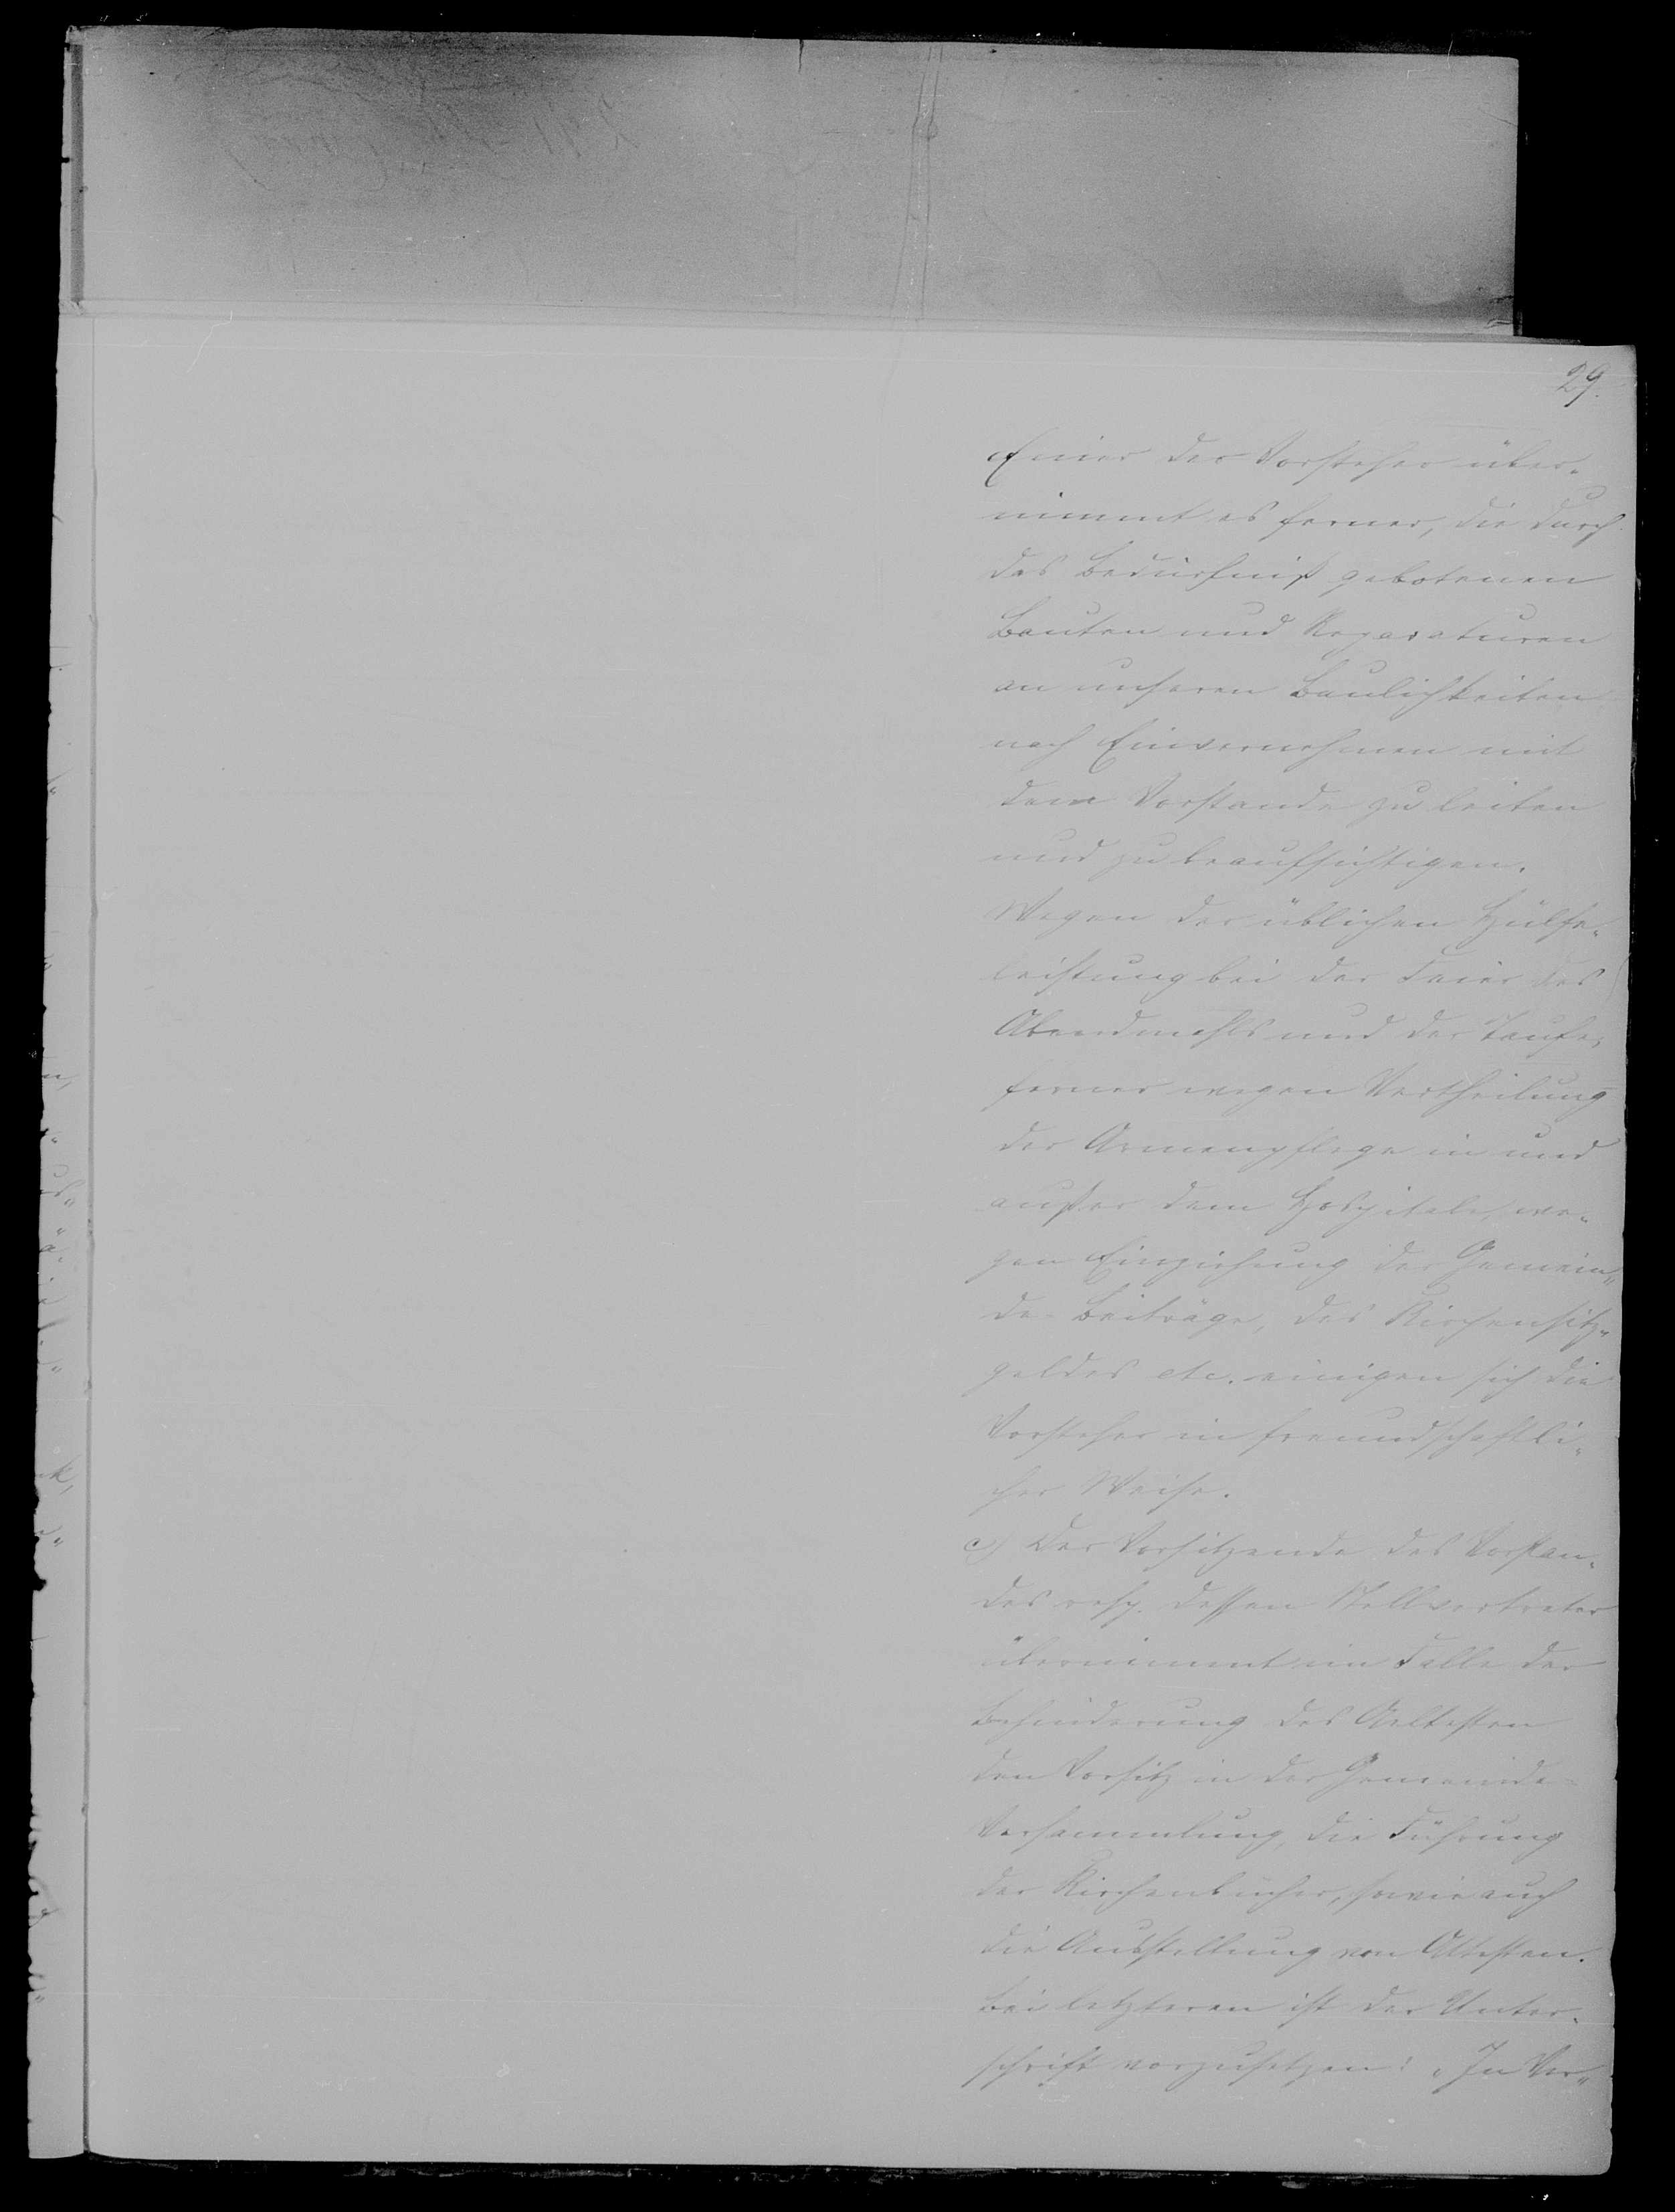 29.
Einer der Vorsteher über-
nimmt es ferner, die durch
das Bedürfniß gebotenen
Bauten und Reparaturen
an unseren Baulichkeiten
nach Einvernehmen mit
dem Vorstande zu leiten
und zu beaufsichtigen.
Wegen der üblichen Hülfe-
leistung bei der Feier des
Abendmahls und der Taufe,
ferner wegen Vertheilung
der Armenpflege in und
außer dem Hospitale, we-
gen Einziehung der Gemein-
de-Beiträge, des Kirchensitz-
geldes etc. einigen sich die
Vorsteher in freundschaftli-
cher Weise.
c) Der Vorsitzende des Vorstan-
des resp. dessen Stellvertreter
übernimmt im Falle der
Behinderung des Aeltesten
den Vorsitz in der Gemeinde-
Versammlung, die Führung
der Kirchenbücher, sowie auch
die Ausstellung von Attesten.
Bei letzteren ist der Unter-
schrift vorzusetzen: „In Ver-